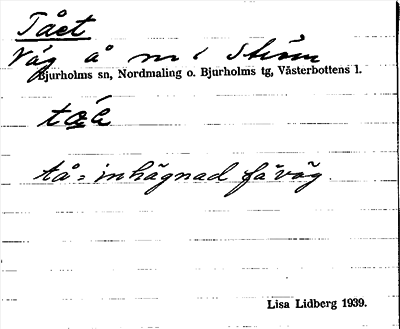 Tået
Väg å m i Ström
Bjurholms sn, Nordmaling o. Bjurholms tg, Västerbottens l.
tå = inhägnad fäväg.
Lisa Lidberg 1939.